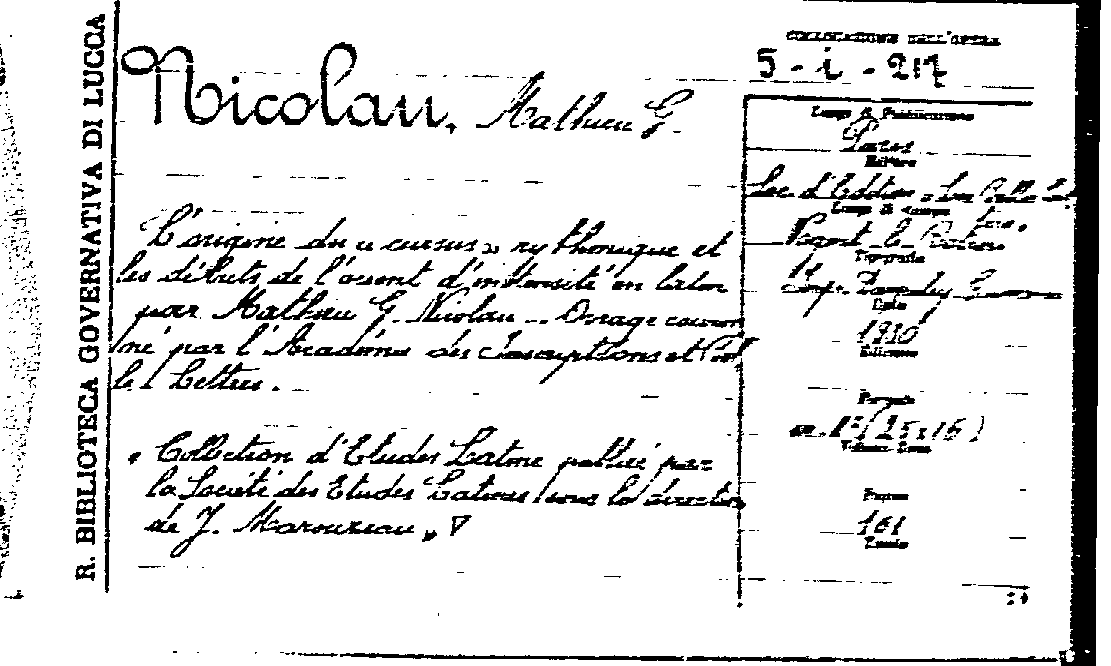 R. BIBLIOTECA GOVERNATIVA DI LUCCA
Nicolau, Mathieu G.
L'origine du « cursus » rythmique et
les débuts de l'accent d'intensité en latin
par Mathieu G. Nicolau - Ouvrage couron
né par l'Académie des Inscriptions et Bel
les Lettres.
« Collection d'Etudes Latine publié par
la Société des Etudes Latines sous la direction
de J. Marouzeau » V
COLLOCAZIONE DELL'OPERA
5 - i - 217
Luogo di Pubblicazione
Paris
Editore
Soc. d'Edition « Les Belles Let
tres.
Luogo di stampa
Nogent le Rotrou
Tipografia
Imp. Daupeley Gouverneur
Data
1930
Edizione
Formato
in 1° (25x16)
Pagine
161
Tavole